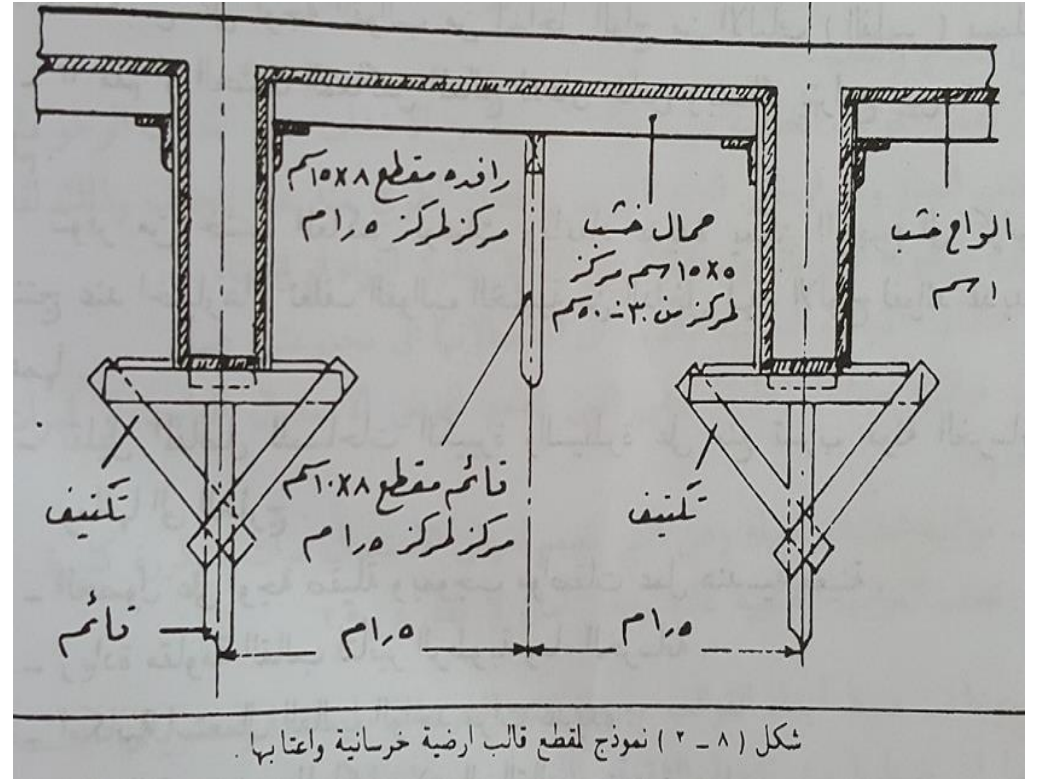 رافده مقطع ٨×١٥سم
مركز لمركز ١٫٥م
حمال خشب
٥×١٥سم مركز
لمركز من ٣٠-٥٠سم
الواح خشب
١ سم
تكتيف
قائم مقطع ٨×١٠سم
مركز لمركز ١٫٥م
تكتيف
قائم
١٫٥م
١٫٥م
شكل (٨ - ٢) نموذج لمقطع قالب ارضية خرسانية واعتابها.